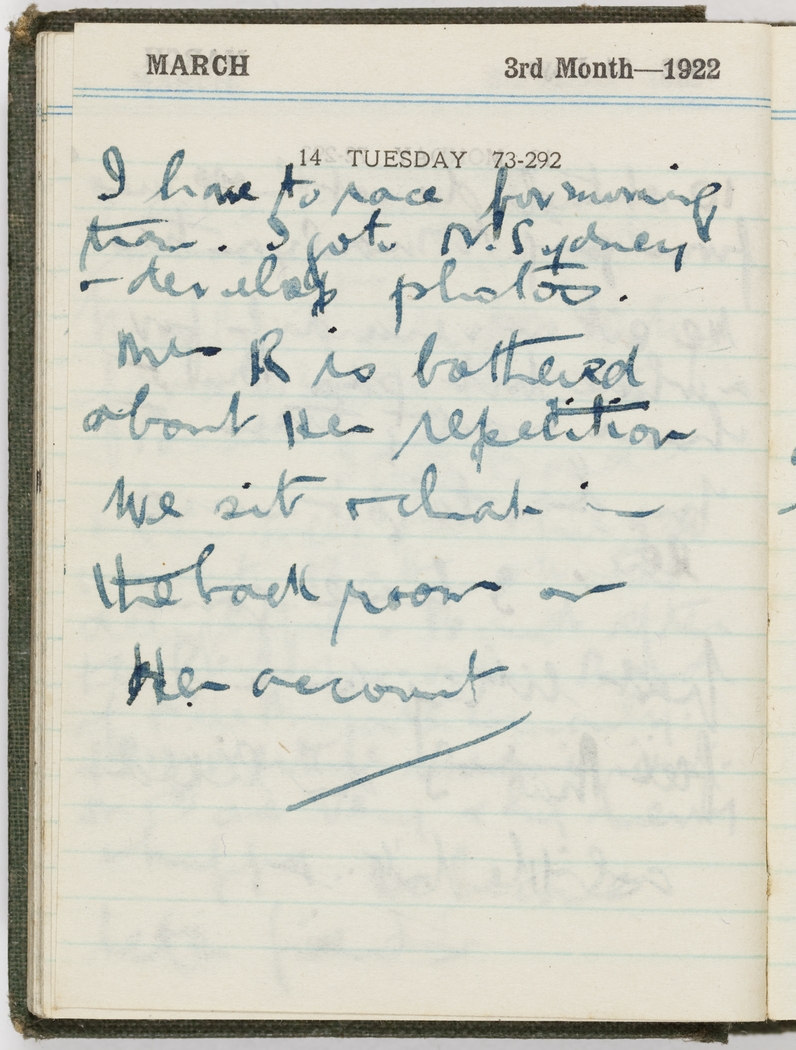 MARCH 3rd Month—1922
14 TUESDAY 73-292
I have to race for morning
tram. I go to N. Sydney
& develop photos.
Mrs R is bothered
about Her repetition
We sit & chat in
the back room on
Her account